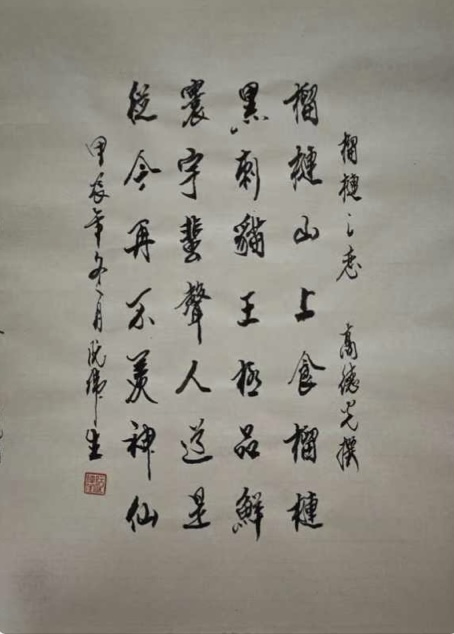 榴槤之恋 高德光撰
榴槤山上食榴槤
黑刺貓王極品鮮
寰宇蜚聲人道是
從今再不羨神仙
甲辰年冬月 生